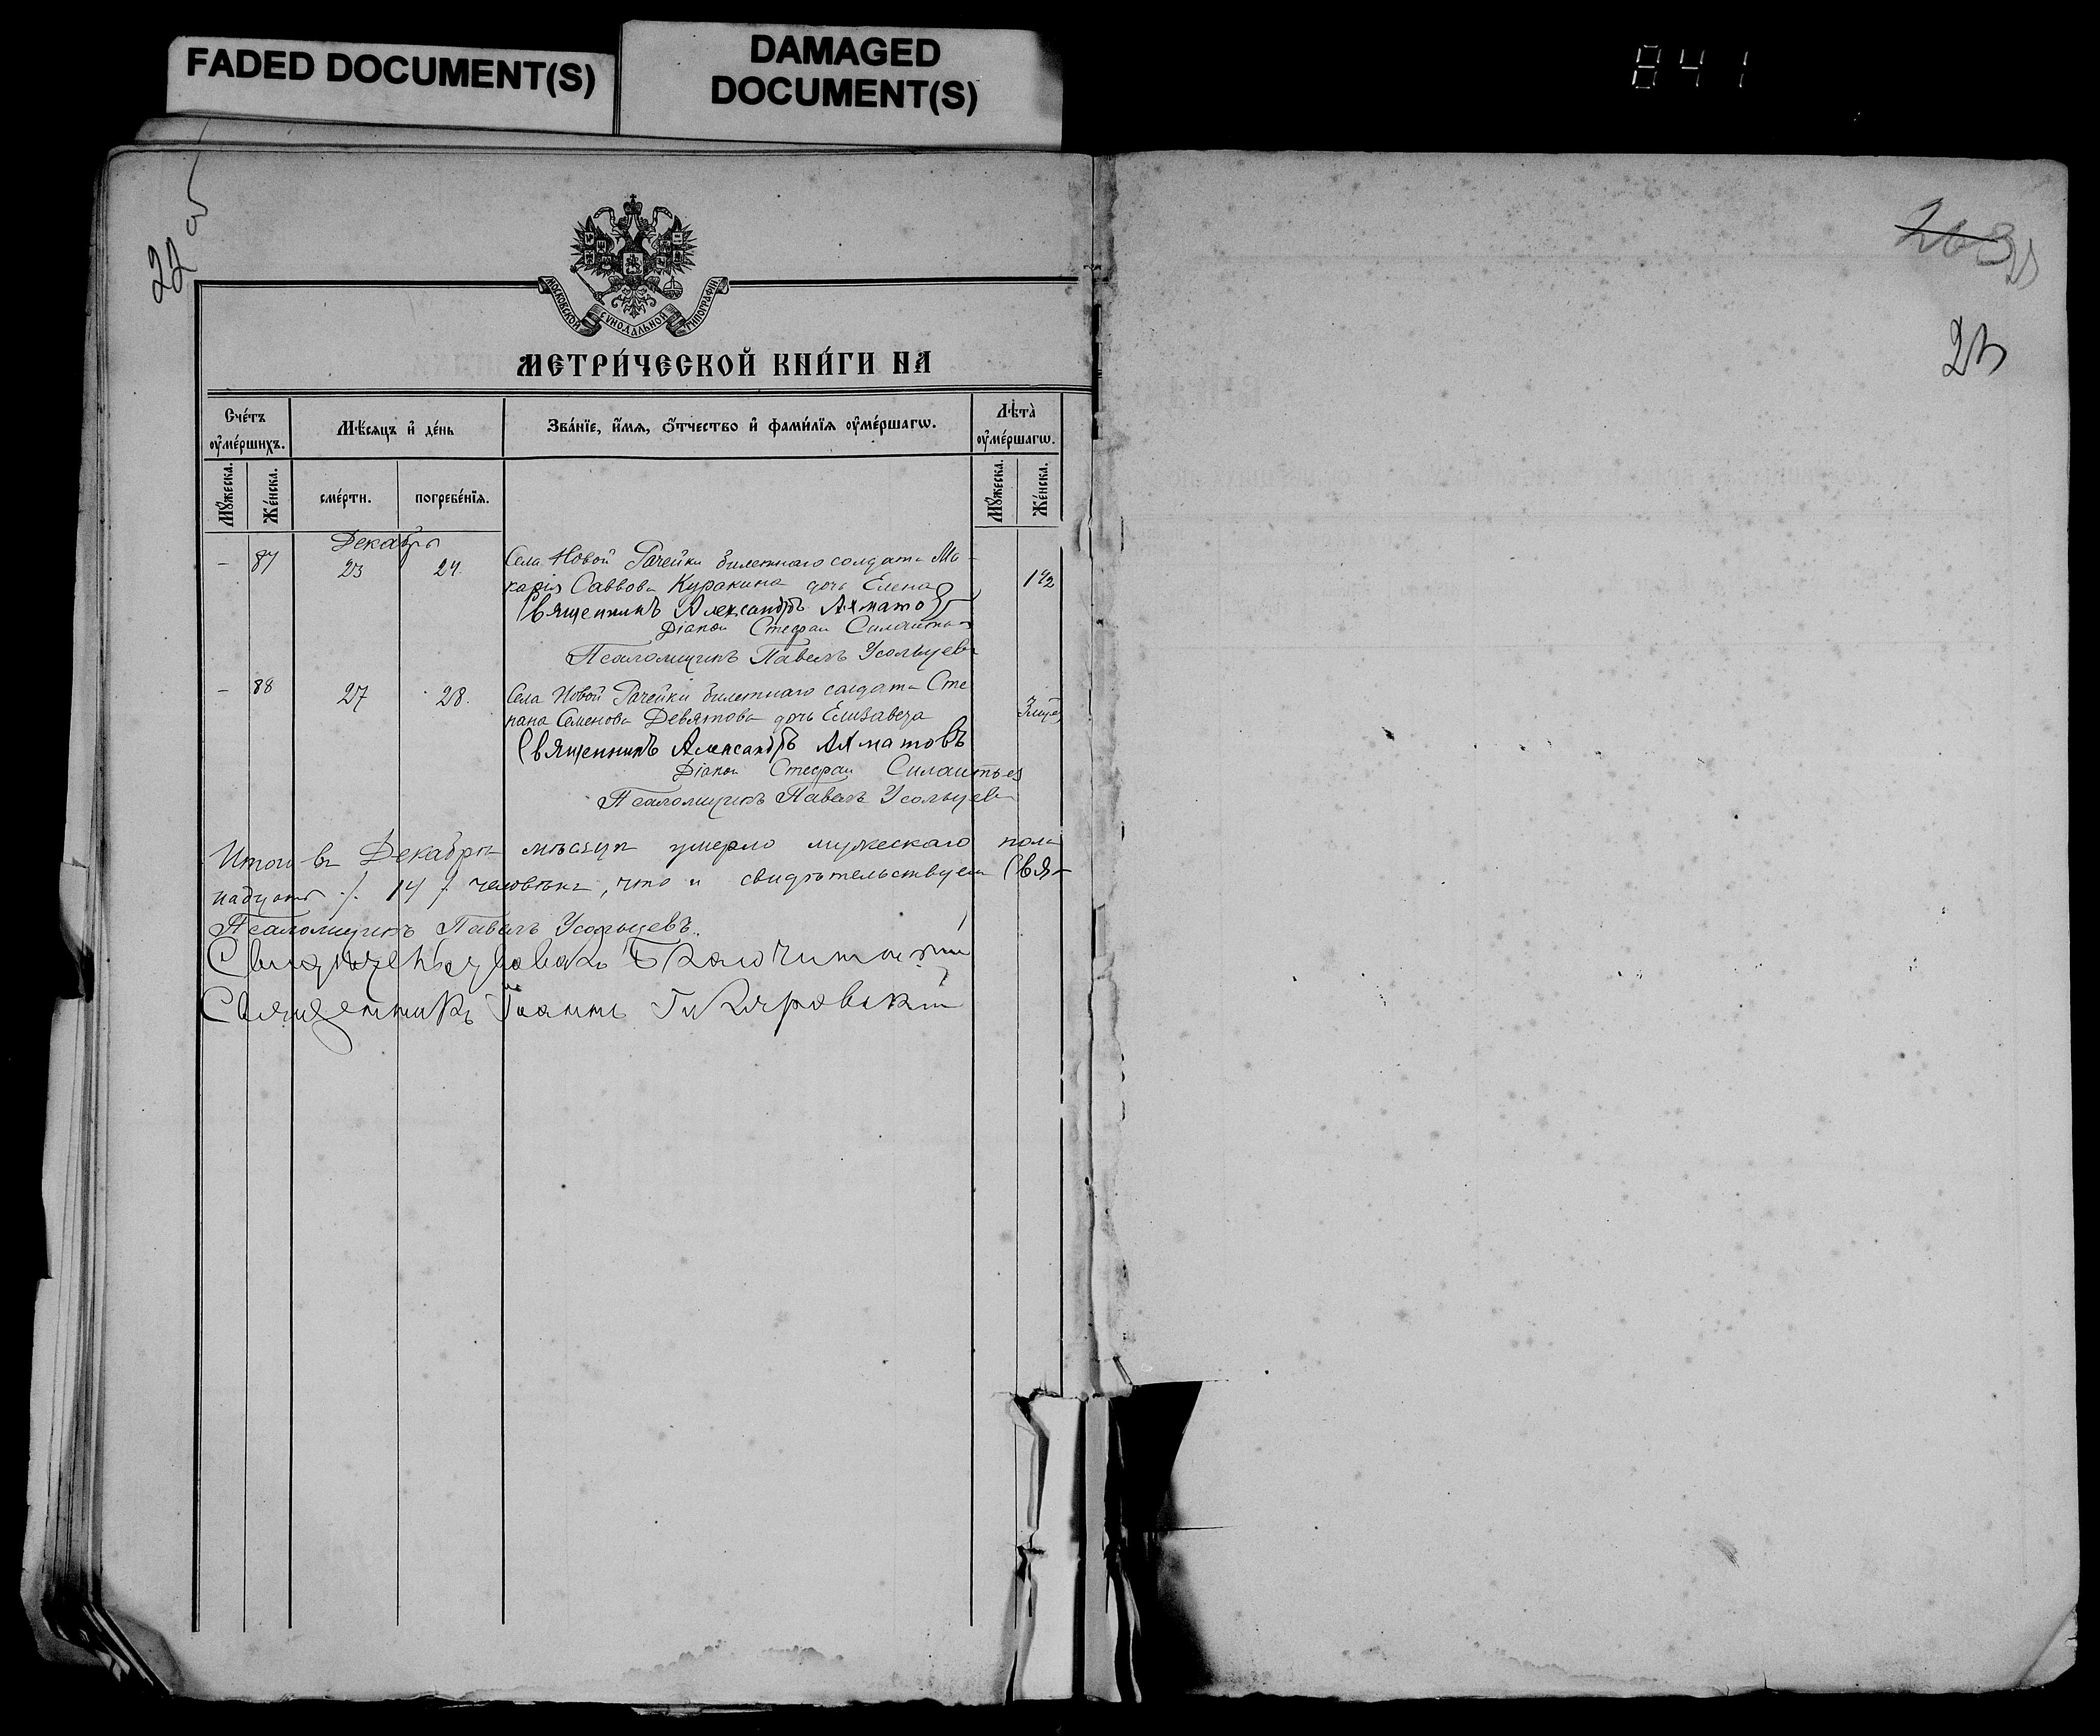 FADED DOCUMENT(S)
DAMAGED
DOCUMENT(S)
841
22 об
263
23
МОСКОВСКОЙ СѴНОДАЛЬНОЙ ТИПОГРАФІИ
МЕТРИ́ЧЕСКОЙ КНИ́ГИ НА
Сче́тъ ᲂу҆ме́ршихъ.
Мѣ́сяцъ и҆ де́нь
Зва́нїе, и҆́мѧ, ѻ҆́тчество и҆ фами́лїѧ ᲂу҆ме́ршагѡ.
Лѣ́та ᲂу҆ме́ршагѡ.
Мꙋ́жеска.
Же́нска.
сме́рти.
погребе́нїѧ.
Мꙋ́жеска.
Же́нска.
Декабрь
– 87 23 24 Села Новой Рачейки билетнаго солдата Ма-
карія Саввова Куракина дочь Елена 1½
Священникъ Александръ Ахматов
Діакон Стефан Силантьев
Псаломщикъ Павелъ Усольцевъ
– 88 27 28. Села Новой Рачейки билетнаго солдата Сте
пана Семенова Девятова дочь Елизавета
Священникъ Александръ Ахматовъ
Діакон Стефан Силантьев
Псаломщикъ Павелъ Усольцевъ
Итого въ Декабрѣ мѣсяцѣ умерло мужескаго пола
надцать /. 14 /. человѣкъ, что и свидѣтельствуем Свя-
Псаломщикъ Павелъ Усольцевъ.
Свидѣтельствовалъ Благочинный
Священникъ Іоаннъ